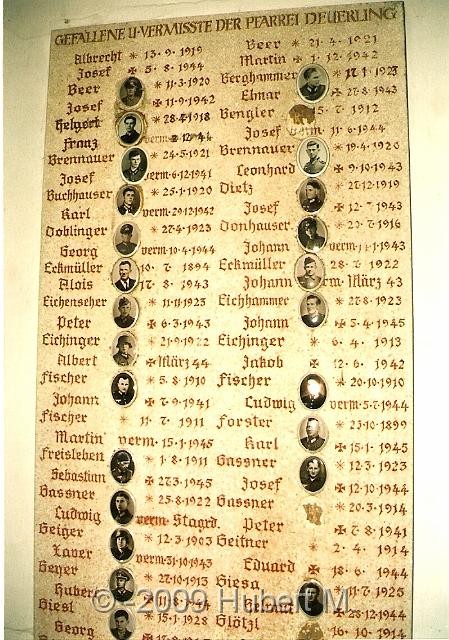 GEFALLENE U. VERMISSTE DER PFARREI DEUERLING
Albrecht * 13·9·1919
Josef ✠ 5·8·1944
Beer * 11·3·1920
Josef ✠ 11·9·1942
Helgert * 28·4·1918
Franz verm· 44
Brennauer * 24·5·1921
Josef verm·6·12·1941
Buchhauser * 25·1·1920
Karl verm·29·12·1942
Doblinger * 27·4·1923
Georg verm·10·4·1944
Eckmüller 10· 7· 1894
Alois 17· 8· 1943
Eichenseher * 11·11·1923
Peter ✠ 6·3·1943
Eichinger * 21·9·1922
Albert ✠ März 44
Fischer * 5·8·1910
Johann ✠ 7·9·1941
Fischer * 11·7·1911
Martin verm·15·1·1945
Freisleben * 1·8·1911
Sebastian ✠ 27·3·1945
Gassner * 25·8·1922
Ludwig verm· Stagrd.
Geiger * 12·3·1903
Xaver verm·31·10·1943
Geyer * 27·10·1913
Hubert 1944
Giesl * 15·1·1928
Georg
Beer * 21·4·1921
Martin ✠ 1·12·1942
Berghammer * 17·1·1923
Elmar ✠ 27·8·1943
Bengler 5·7·1912
Josef verm· 11·6·1944
Brennauer * 19·4·1920
Leonhard ✠ 9·10·1943
Dietz * 27·12·1919
Josef ✠ 12·7·1943
Donhauser 7·1916
Johann verm·14·1·1943
Eckmüller 28·7·1922
Johann rm· März 43
Eichhammer * 27·8·1923
Johann ✠ 3·4·1945
Eichinger * 6·4·1913
Jakob ✠ 12·6·1942
Fischer * 20·10·1910
Ludwig verm·5·7·1944
Forster * 23·10·1899
Karl ✠ 15·1·1945
Gassner * 12·3·1923
Josef ✠ 12·10·1944
Gassner * 20·3·1914
Peter ✠ 7·8·1941
Geitner * 2·4·1914
Eduard ✠ 18·6·1944
Giesa * 11·7·1925
Helmut ✠ 23·12·1944
Glötzl 16·10·191
© -2009 Hubert M